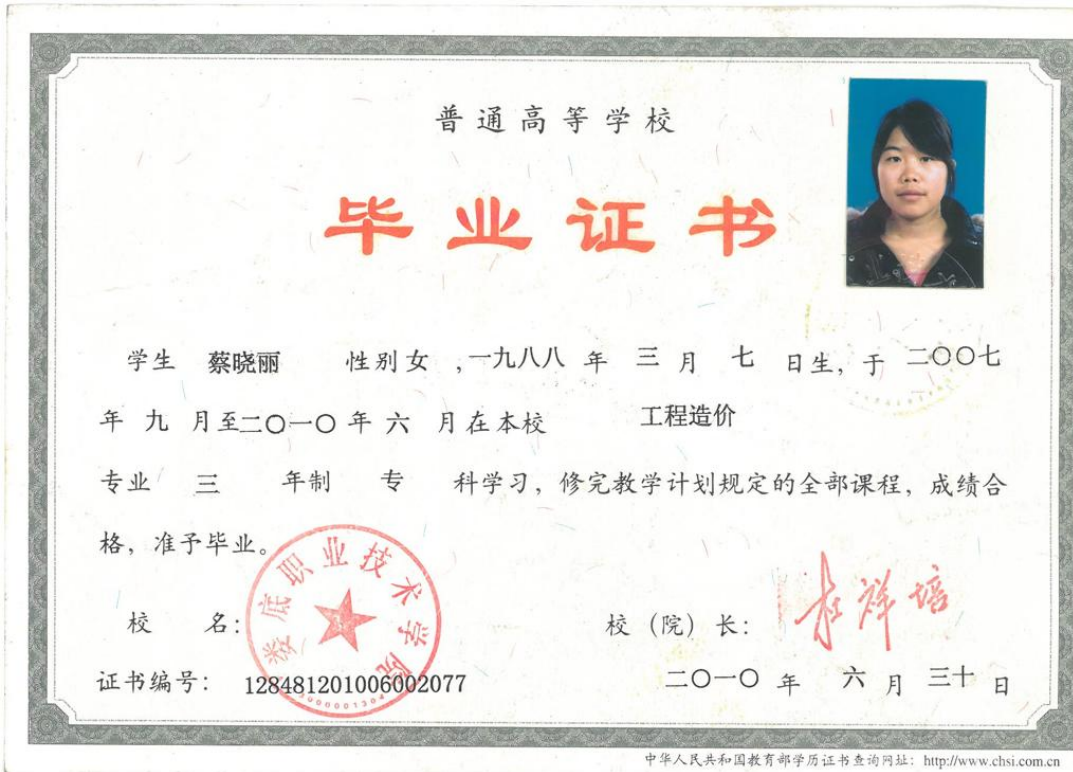 普通高等学校
毕业证书
学生 蔡晓丽 性别 女 ,一九八八 年 三 月 七 日生, 于 二〇〇七
年 九 月至二〇一〇 年 六 月在本校 工程造价
专业 三 年制 专 科学习, 修完教学计划规定的全部课程, 成绩合
格, 准予毕业。
娄底职业技术学院
校 名:
校 (院) 长:
祥培
证书编号: 128481201006002077
二〇一〇 年 六 月 三十 日
中华人民共和国教育部学历证书查询网址: http://www.chsi.com.cn